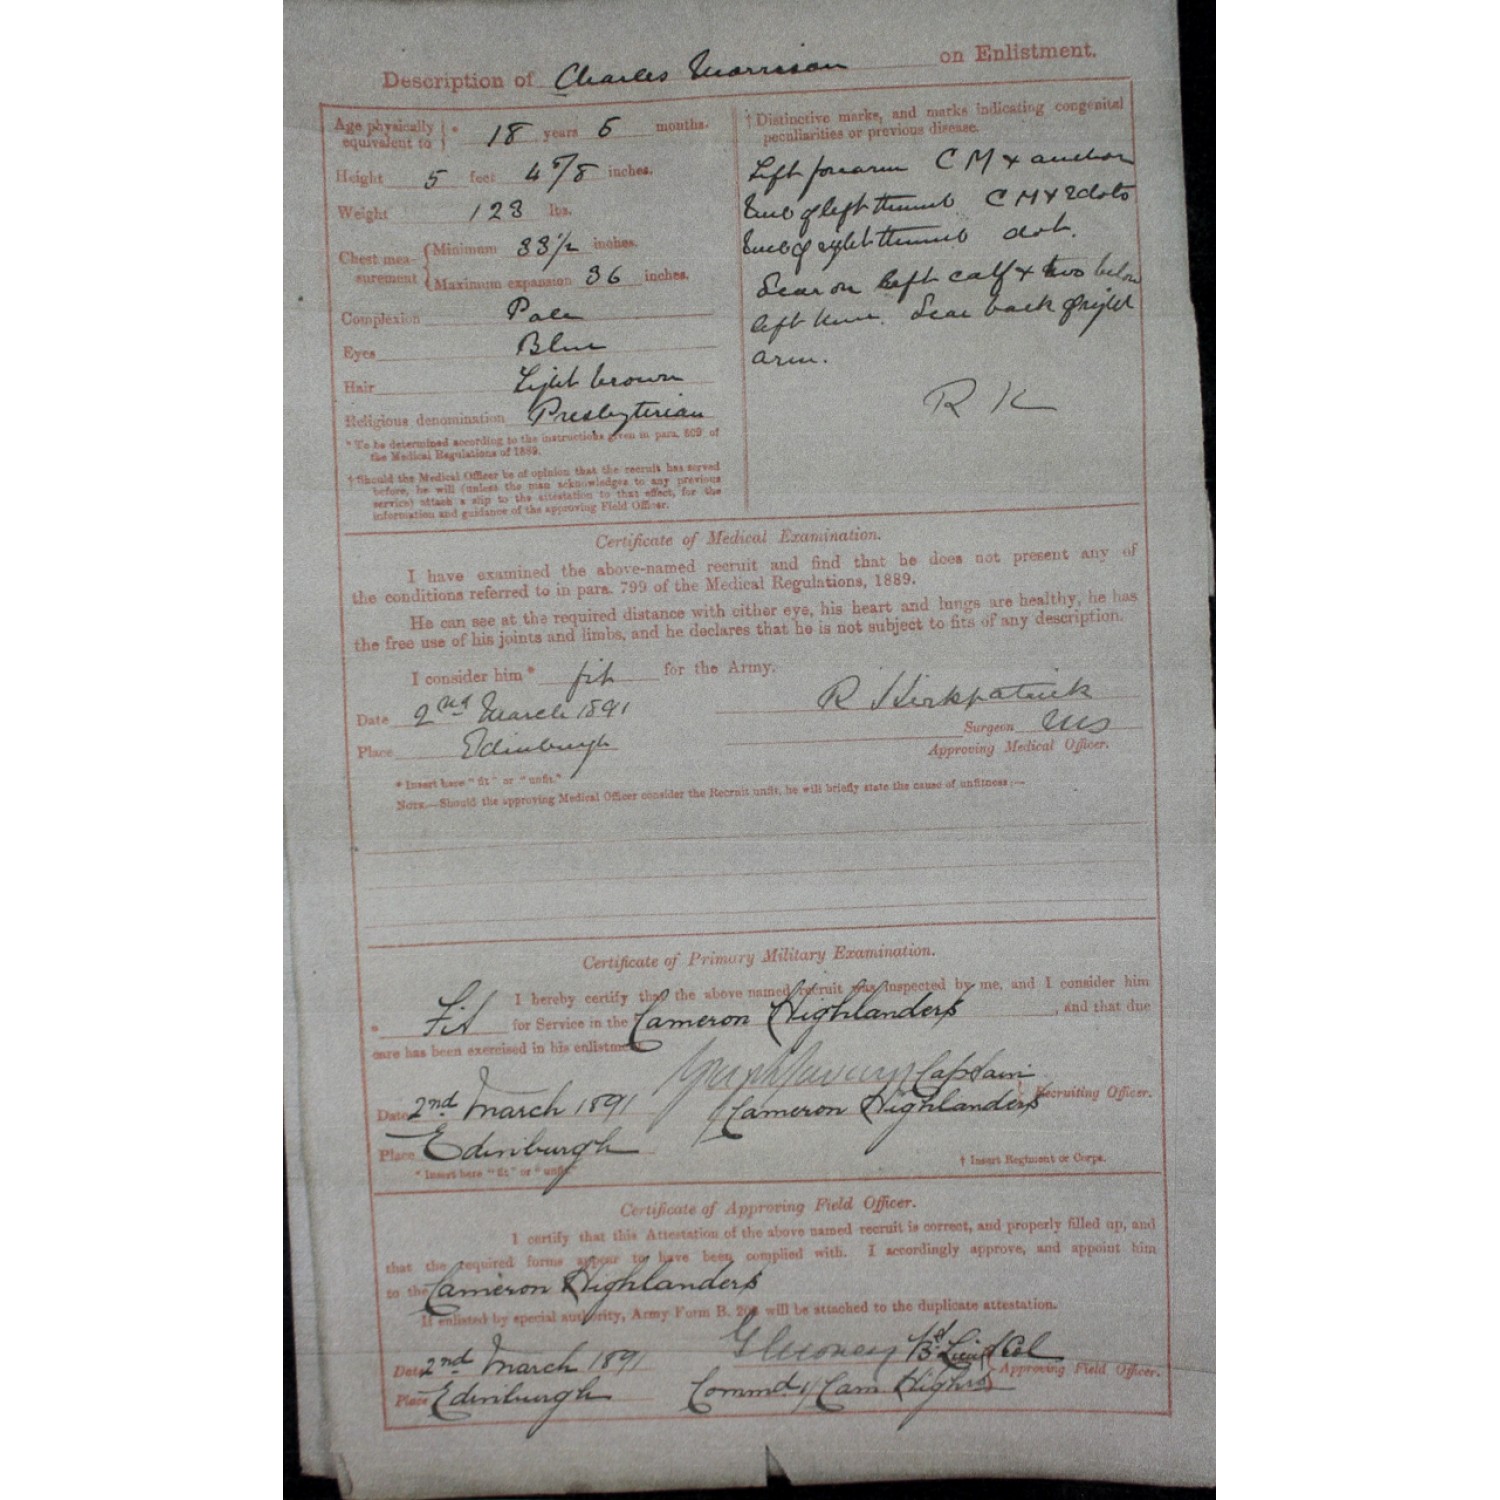 Description of Charles Morrison on Enlistment.
Age physically equivalent to * 18 years 6 months.
Height 5 feet 4 5/8 inches.
Weight 123 lbs.
Chest measurement Minimum 33 1/2 inches.
Maximum expansion 36 inches.
Complexion Pale
Eyes Blue
Hair Light brown
Religious denomination Presbyterian
* To be determined according to the instructions given in para. 809 of
the Medical Regulations of 1889.
† Should the Medical Officer be of opinion that the recruit has served
before, he will (unless the man acknowledges to any previous
service) attach a slip to the attestation to that effect, for the
information and guidance of the approving Field Officer.
† Distinctive marks, and marks indicating congenital
peculiarities or previous disease.
Left forearm C M & anchor
of left thumb C M & 2 dots
of right thumb dot.
Scar on left calf & two below
left knee. Scar back of right
arm.
R K
Certificate of Medical Examination.
I have examined the above-named recruit and find that he does not present any of
the conditions referred to in para. 799 of the Medical Regulations, 1889.
He can see at the required distance with either eye, his heart and lungs are healthy, he has
the free use of his joints and limbs, and he declares that he is not subject to fits of any description.
I consider him * fit for the Army.
Date 2nd March 1891
R Kirkpatrick
Place Edinburgh
Surgeon MS
Approving Medical Officer.
* Insert here "fit" or "unfit."
NOTE.—Should the approving Medical Officer consider the Recruit unfit, he will briefly state the cause of unfitness:—
Certificate of Primary Military Examination.
I hereby certify that the above named recruit was inspected by me, and I consider him
* Fit for Service in the Cameron Highlanders, and that due
care has been exercised in his enlistment.
Captain
Date 2nd March 1891 Cameron Highlanders Recruiting Officer.
Place Edinburgh
* Insert here "fit" or "unfit."
† Insert Regiment or Corps.
Certificate of Approving Field Officer.
I certify that this Attestation of the above named recruit is correct, and properly filled up, and
that the required forms appear to have been complied with. I accordingly approve, and appoint him
to the Cameron Highlanders
If enlisted by special authority, Army Form B. 203 will be attached to the duplicate attestation.
Date 2nd March 1891 Lieut Col Approving Field Officer.
Place Edinburgh Commd Cam Highrs